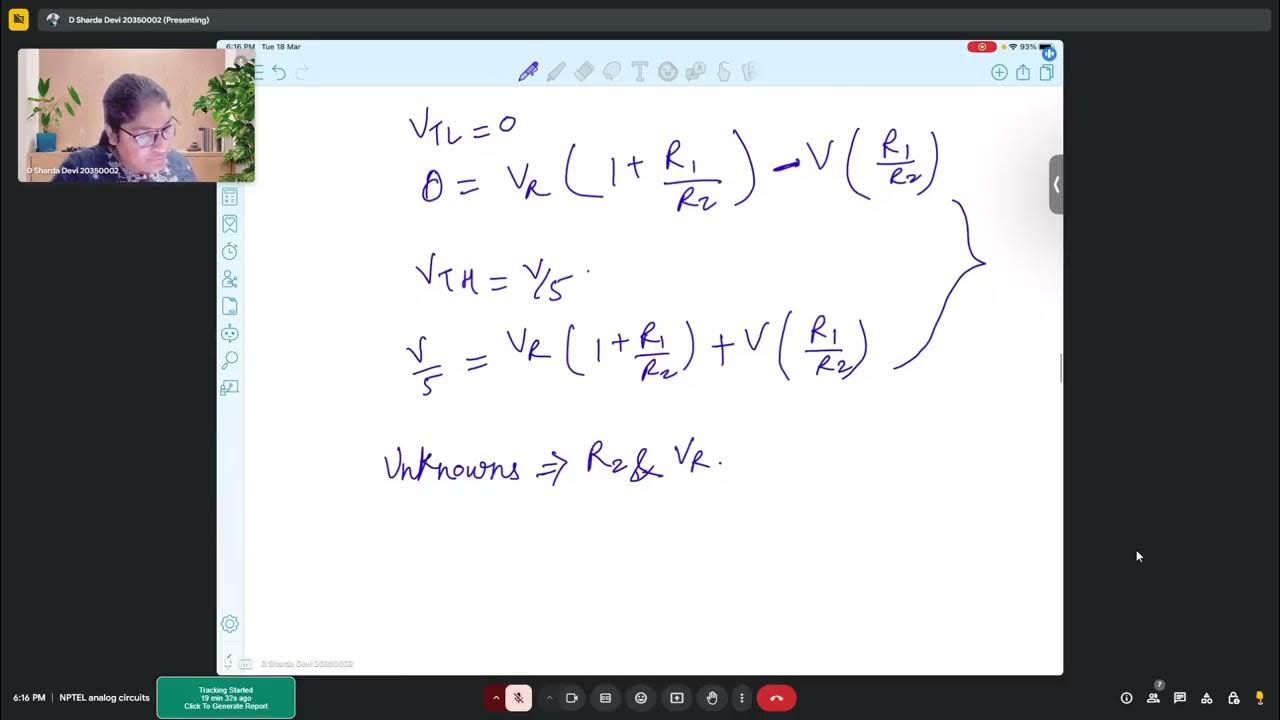 D Sharda Devi 20350002 (Presenting)
6:16 PM Tue 18 Mar
93%
D Sharda Devi 20350002
V_TL = 0
0 = V_R (1 + R_1/R_2) - V (R_1/R_2)
V_TH = V/5
V/5 = V_R (1 + R_1/R_2) + V (R_1/R_2)
Unknowns ⇒ R_2 & V_R.
D Sharda Devi 20350002
6:16 PM | NPTEL analog circuits
Tracking Started
19 min 32s ago
Click To Generate Report
7